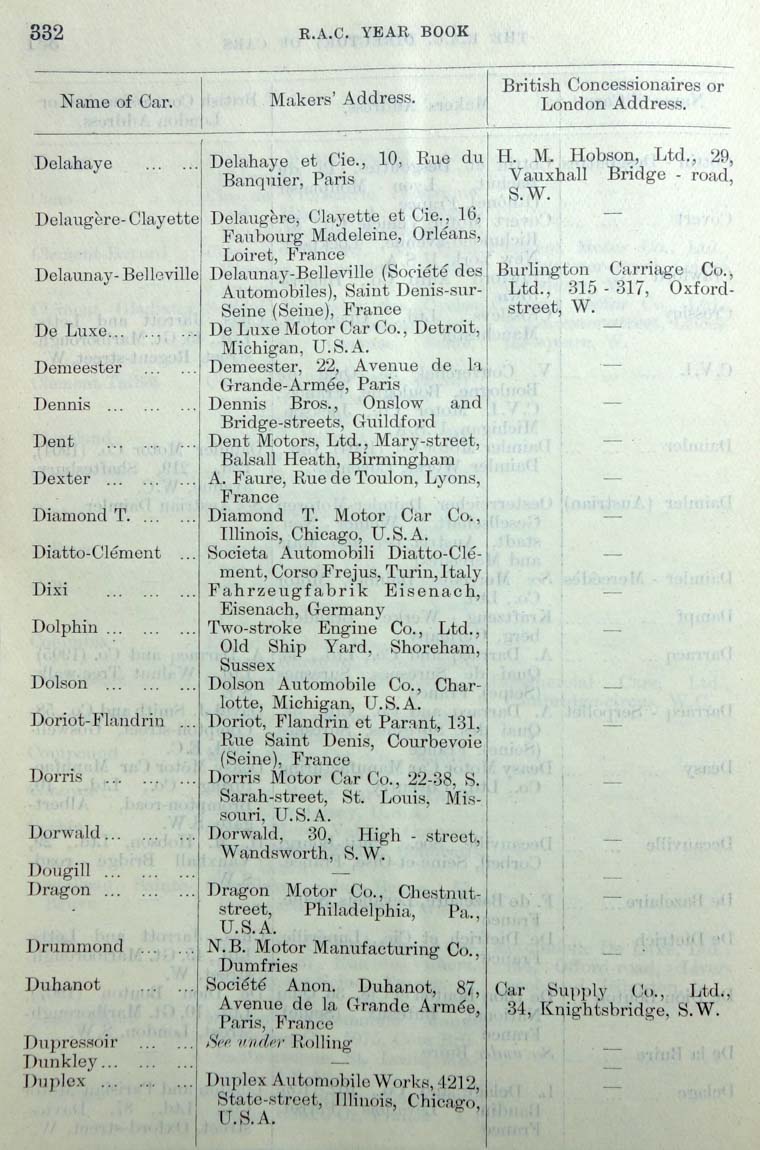 332
R.A.C. YEAR BOOK
Name of Car.
Makers' Address.
British Concessionaires or
London Address.
Delahaye ... ...
Delahaye et Cie., 10, Rue du
Banquier, Paris
H. M. Hobson, Ltd., 29,
Vauxhall Bridge - road,
S.W.
Delaugère-Clayette
Delaugère, Clayette et Cie., 16,
Faubourg Madeleine, Orléans,
Loiret, France
—
Delaunay-Belleville
Delaunay-Belleville (Société des
Automobiles), Saint Denis-sur-
Seine (Seine), France
Burlington Carriage Co.,
Ltd., 315 - 317, Oxford-
street, W.
De Luxe... ... ...
De Luxe Motor Car Co., Detroit,
Michigan, U.S.A.
—
Demeester ... ...
Demeester, 22, Avenue de la
Grande-Armée, Paris
—
Dennis ... ... ...
Dennis Bros., Onslow and
Bridge-streets, Guildford
—
Dent ... ... ...
Dent Motors, Ltd., Mary-street,
Balsall Heath, Birmingham
—
Dexter ... ... ...
A. Faure, Rue de Toulon, Lyons,
France
—
Diamond T. ... ...
Diamond T. Motor Car Co.,
Illinois, Chicago, U.S.A.
—
Diatto-Clément ...
Societa Automobili Diatto-Clé-
ment, Corso Frejus, Turin, Italy
—
Dixi ... ... ...
Fahrzeugfabrik Eisenach,
Eisenach, Germany
—
Dolphin ... ... ...
Two-stroke Engine Co., Ltd.,
Old Ship Yard, Shoreham,
Sussex
—
Dolson ... ... ...
Dolson Automobile Co., Char-
lotte, Michigan, U.S.A.
—
Doriot-Flandrin ...
Doriot, Flandrin et Parant, 131,
Rue Saint Denis, Courbevoie
(Seine), France
—
Dorris ... ... ...
Dorris Motor Car Co., 22-38, S.
Sarah-street, St. Louis, Mis-
souri, U.S.A.
—
Dorwald... ... ...
Dorwald, 30, High - street,
Wandsworth, S.W.
—
Dougill ... ... ...
—
—
Dragon ... ... ...
Dragon Motor Co., Chestnut-
street, Philadelphia, Pa.,
U.S.A.
—
Drummond ... ...
N.B. Motor Manufacturing Co.,
Dumfries
—
Duhanot ... ...
Société Anon. Duhanot, 87,
Avenue de la Grande Armée,
Paris, France
Car Supply Co., Ltd.,
34, Knightsbridge, S.W.
Dupressoir ... ...
See under Rolling
—
Dunkley... ... ...
—
—
Duplex ... ... ...
Duplex Automobile Works, 4212,
State-street, Illinois, Chicago,
U.S.A.
—